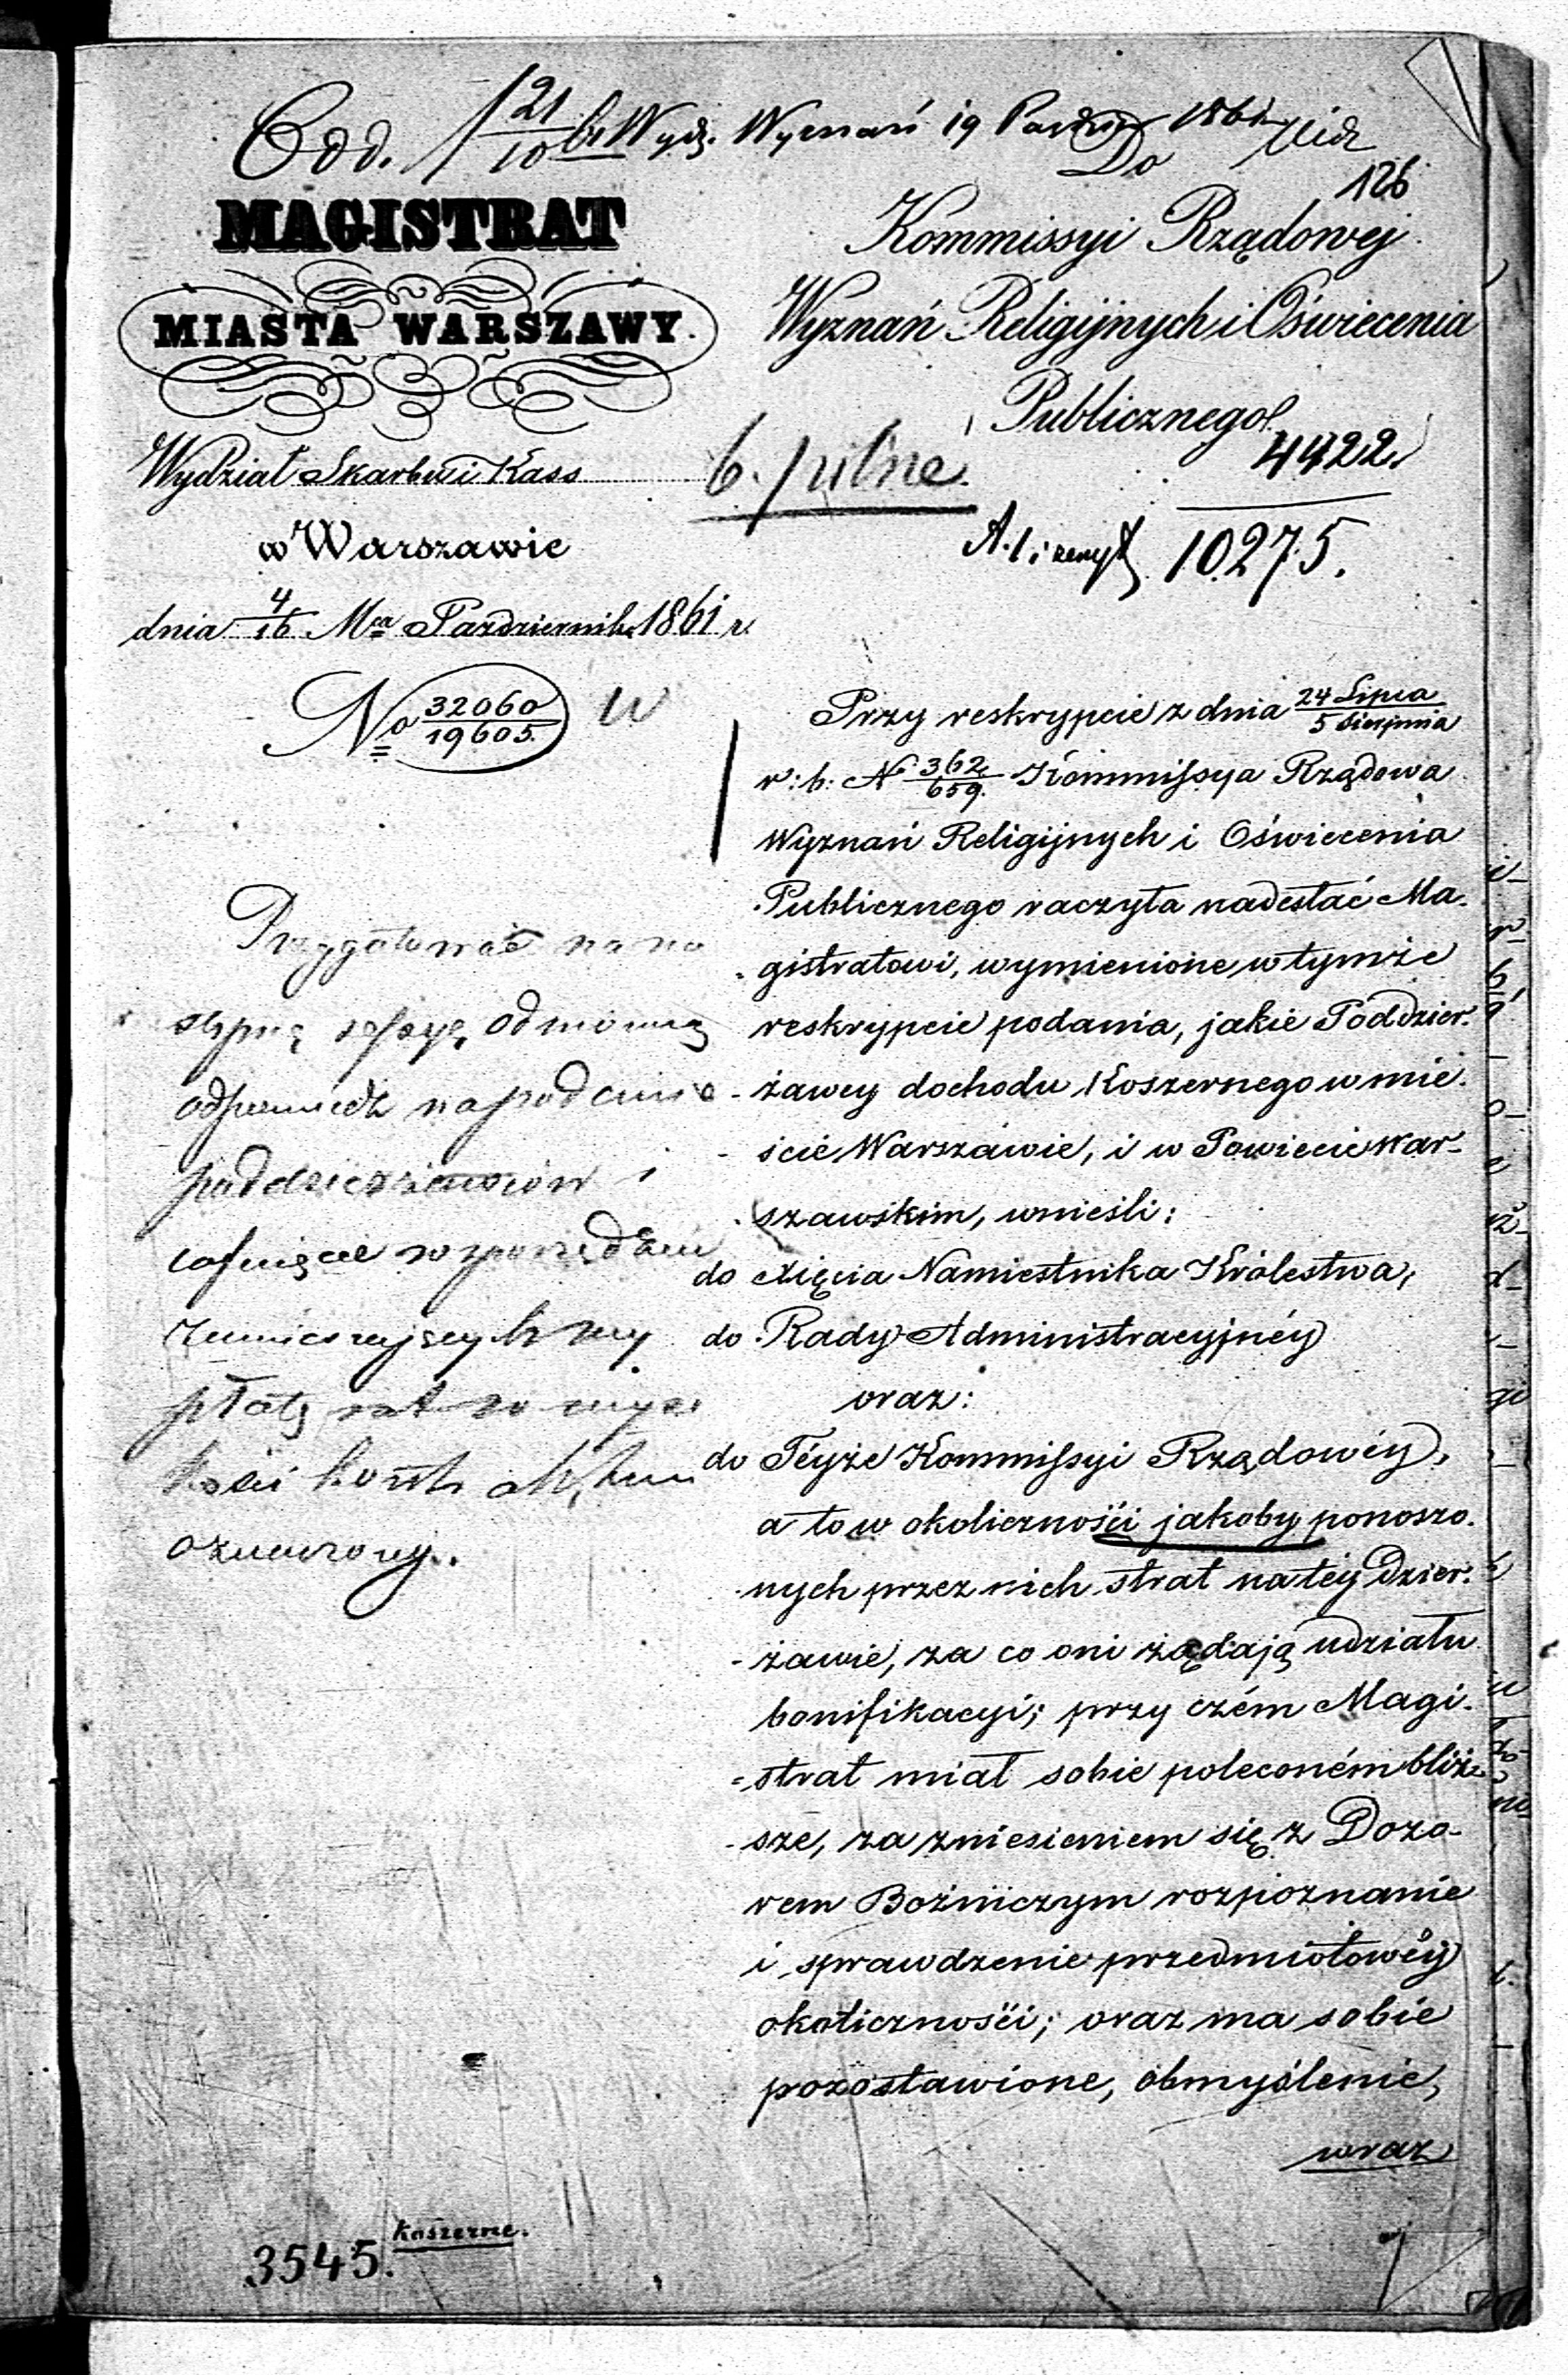 Odd. 21/10 br Wydz. Wyznań 19 Paździer 1861
126
MAGISTRAT
MIASTA WARSZAWY.
Wydział Skarbu i Kass
w Warszawie
dnia 4/16 Mca Października 1861 r.
No 32060/19605.
Do
Kommissyi Rządowej
Wyznań Religijnych i Oświecenia
Publicznego.
b. pilne
4422.
10275.
Przy reskrypcie z dnia 24 Lipca/5 Sierpnia
r: b: N 362/659. Kommissya Rządowa
Wyznań Religijnych i Oświecenia
Publicznego raczyła nadesłać Ma-
gistratowi, wymienione w tymże
reskrypcie podania, jakie Poddzier-
żawcy dochodu Koszernego w mie-
ście Warszawie, i w Powiecie War-
szawskim, wnieśli:
do Xięcia Namiestnika Królestwa,
do Rady Administracyjnéy
oraz:
do Téyże Kommissyi Rządowéy,
a to w okoliczności jakoby ponoszo-
nych przez nich strat na téy Dzier-
żawie, za co oni żądają udziału
bonifikacyi; przy czém Magi-
strat miał sobie poleconém bliż-
sze, za zniesieniem się z Dozo-
rem Bożniczym rozpoznanie
i sprawdzenie przedmiotowéy
okoliczności; oraz ma sobie
pozostawione, obmyślenie,
wraz
Przygotować na na
stępną sessyę, odmowną
odpowiedź na podanie
poddzierżawców i
cofnięcie rozporządzeń
zmniejszających wy
płatę rat do wyso
kości kontraktem
oznaczonej.
3545.
Koszerne.